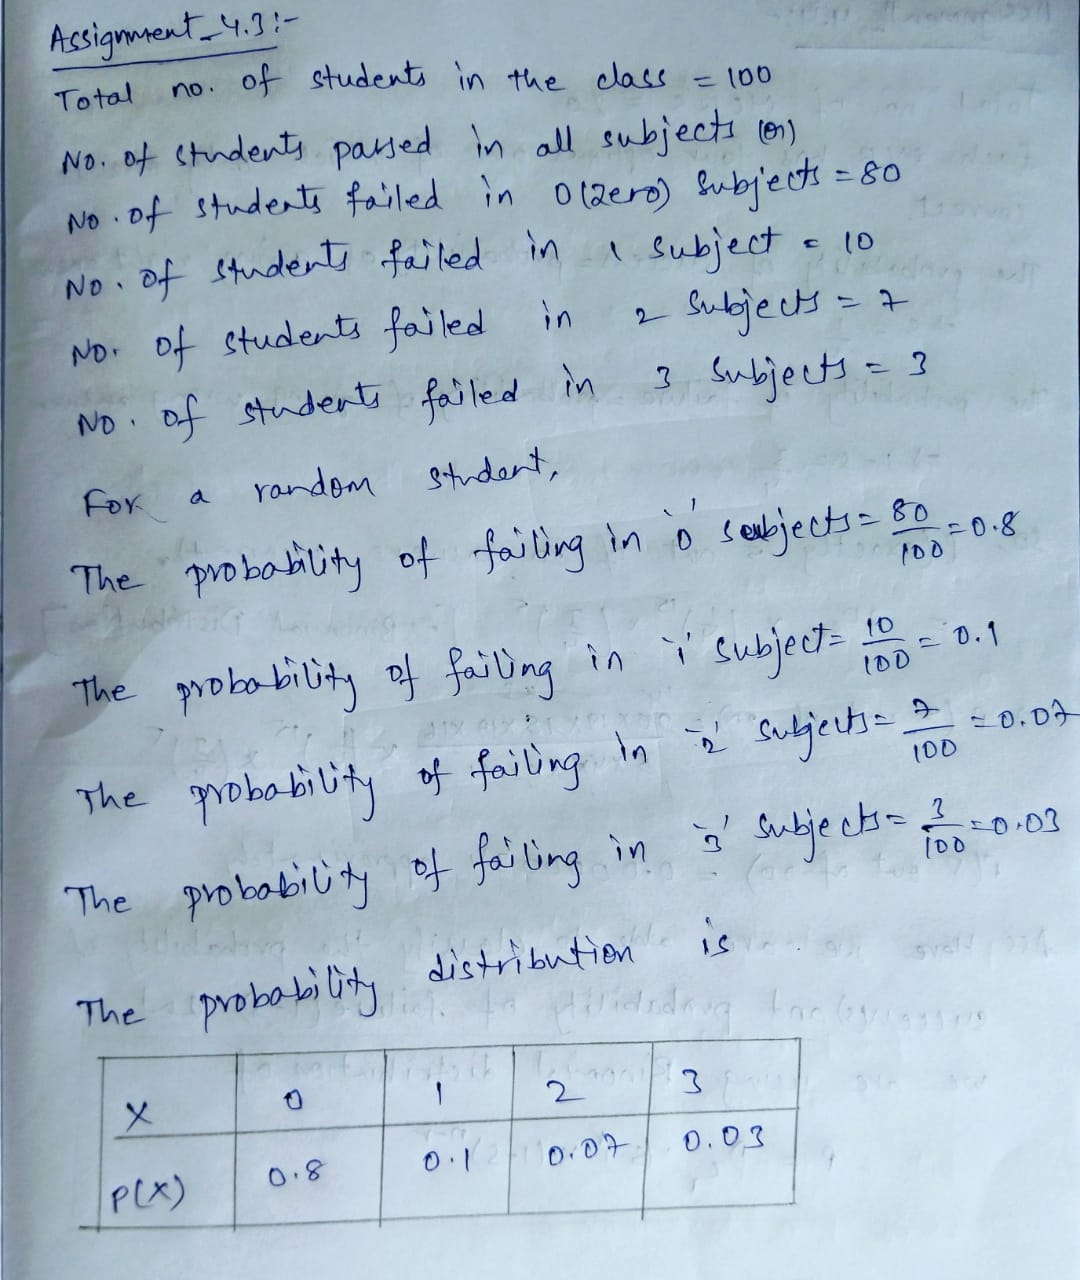 Assignment_4.3:-
Total no. of students in the class = 100
No. of students passed in all subjects (or)
No. of students failed in 0 (zero) Subjects = 80
No. of students failed in 1 subject = 10
No. of students failed in 2 Subjects = 7
No. of students failed in 3 Subjects = 3
For a random student,
The probability of failing in '0' subjects = 80/100 = 0.8
The probability of failing in '1' subject = 10/100 = 0.1
The probability of failing in '2' subjects = 7/100 = 0.07
The probability of failing in '3' Subjects = 3/100 = 0.03
The probability distribution is
X 0 1 2 3
P(X) 0.8 0.1 0.07 0.03